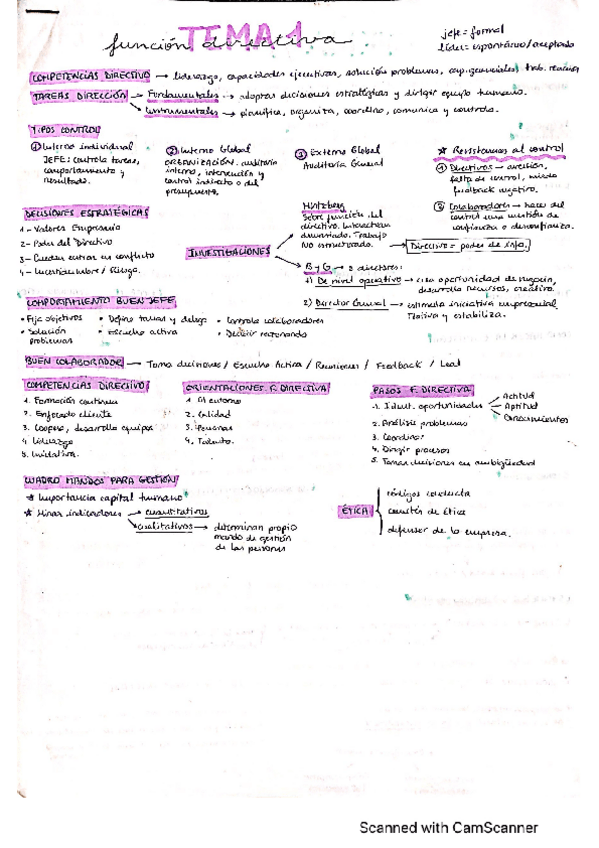 TEMA 1
función directiva
jefe = formal
líder = espontáneo/aceptado
COMPETENCIAS DIRECTIVO → liderazgo, capacidades ejecutivas, solución problemas, cap. gerenciales, hab.
TAREAS DIRECCIÓN → Fundamentales → adoptar decisiones estratégicas y dirigir equipo humano.
Instrumentales → planifica, organiza, coordina, comunica y controla.
TIPOS CONTROL
① Interno individual
JEFE: controla tareas,
comportamiento y
resultado.
② Interno Global
ORGANIZACIÓN: auditoría
interna, intervención y
control indirecto o del
presupuesto.
③ Externo Global
Auditoría General
★ Resistencias al control
① Directivos → aversión,
falta de control, miedo
feedback negativo.
② Colaboradores → hacer del
control una cuestión de
confianza o desconfianza.
DECISIONES ESTRATÉGICAS
1 - Valores Empresario
2 - Poder del Directivo
3 - Pueden entrar en conflicto
4 - Incertidumbre / Riesgo.
INVESTIGACIONES
Mintzberg
Sobre función del
directivo. Interactúan
demasiado. Trabajo
No estructurado.
Directivo = poder de info.
B y G → 2 directores:
1) De nivel operativo → crea oportunidad de negocio,
desarrolla recursos, creativo.
2) Director General → estimula iniciativa empresarial
y estabiliza.
COMPORTAMIENTO BUEN JEFE
• Fija objetivos
• Solución
problemas
• Define tareas y delega
• Escucha activa
• Controla colaboradores
• Decidir razonando
BUEN COLABORADOR → Toma decisiones / Escucha Activa / Reuniones / Feedback / Leal
COMPETENCIAS DIRECTIVO
1. Formación continua
2. Enfocado cliente
3. Coopera, desarrolla equipos
4. Liderazgo
5. Iniciativa.
ORIENTACIONES F. DIRECTIVA
1. Al entorno
2. Calidad
3. Personas
4. Talento.
PASOS F. DIRECTIVA
1. Ident. oportunidades
Actitud
Aptitud
Conocimientos
2. Análisis problemas
3. Coordinar
4. Dirigir procesos
5. Tomar decisiones en ambigüedad
CUADRO MANDOS PARA GESTIÓN
★ Importancia capital humano
★ Mirar indicadores → cuantitativos
cualitativos → determinan propio
mando de gestión
de las personas
ÉTICA
códigos conducta
comités de ética
defensor de la empresa.
Scanned with CamScanner